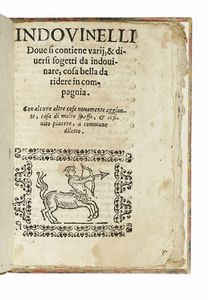 INDOVINELLI
Doue si contiene varij, & di
uersi sogetti da indoui
nare, cosa bella da
ridere in com
pagnia.
Con alcune altre cose nouamente aggiun
te, cosa di molto spasso, & infi
nito piacere, a commune
diletto.